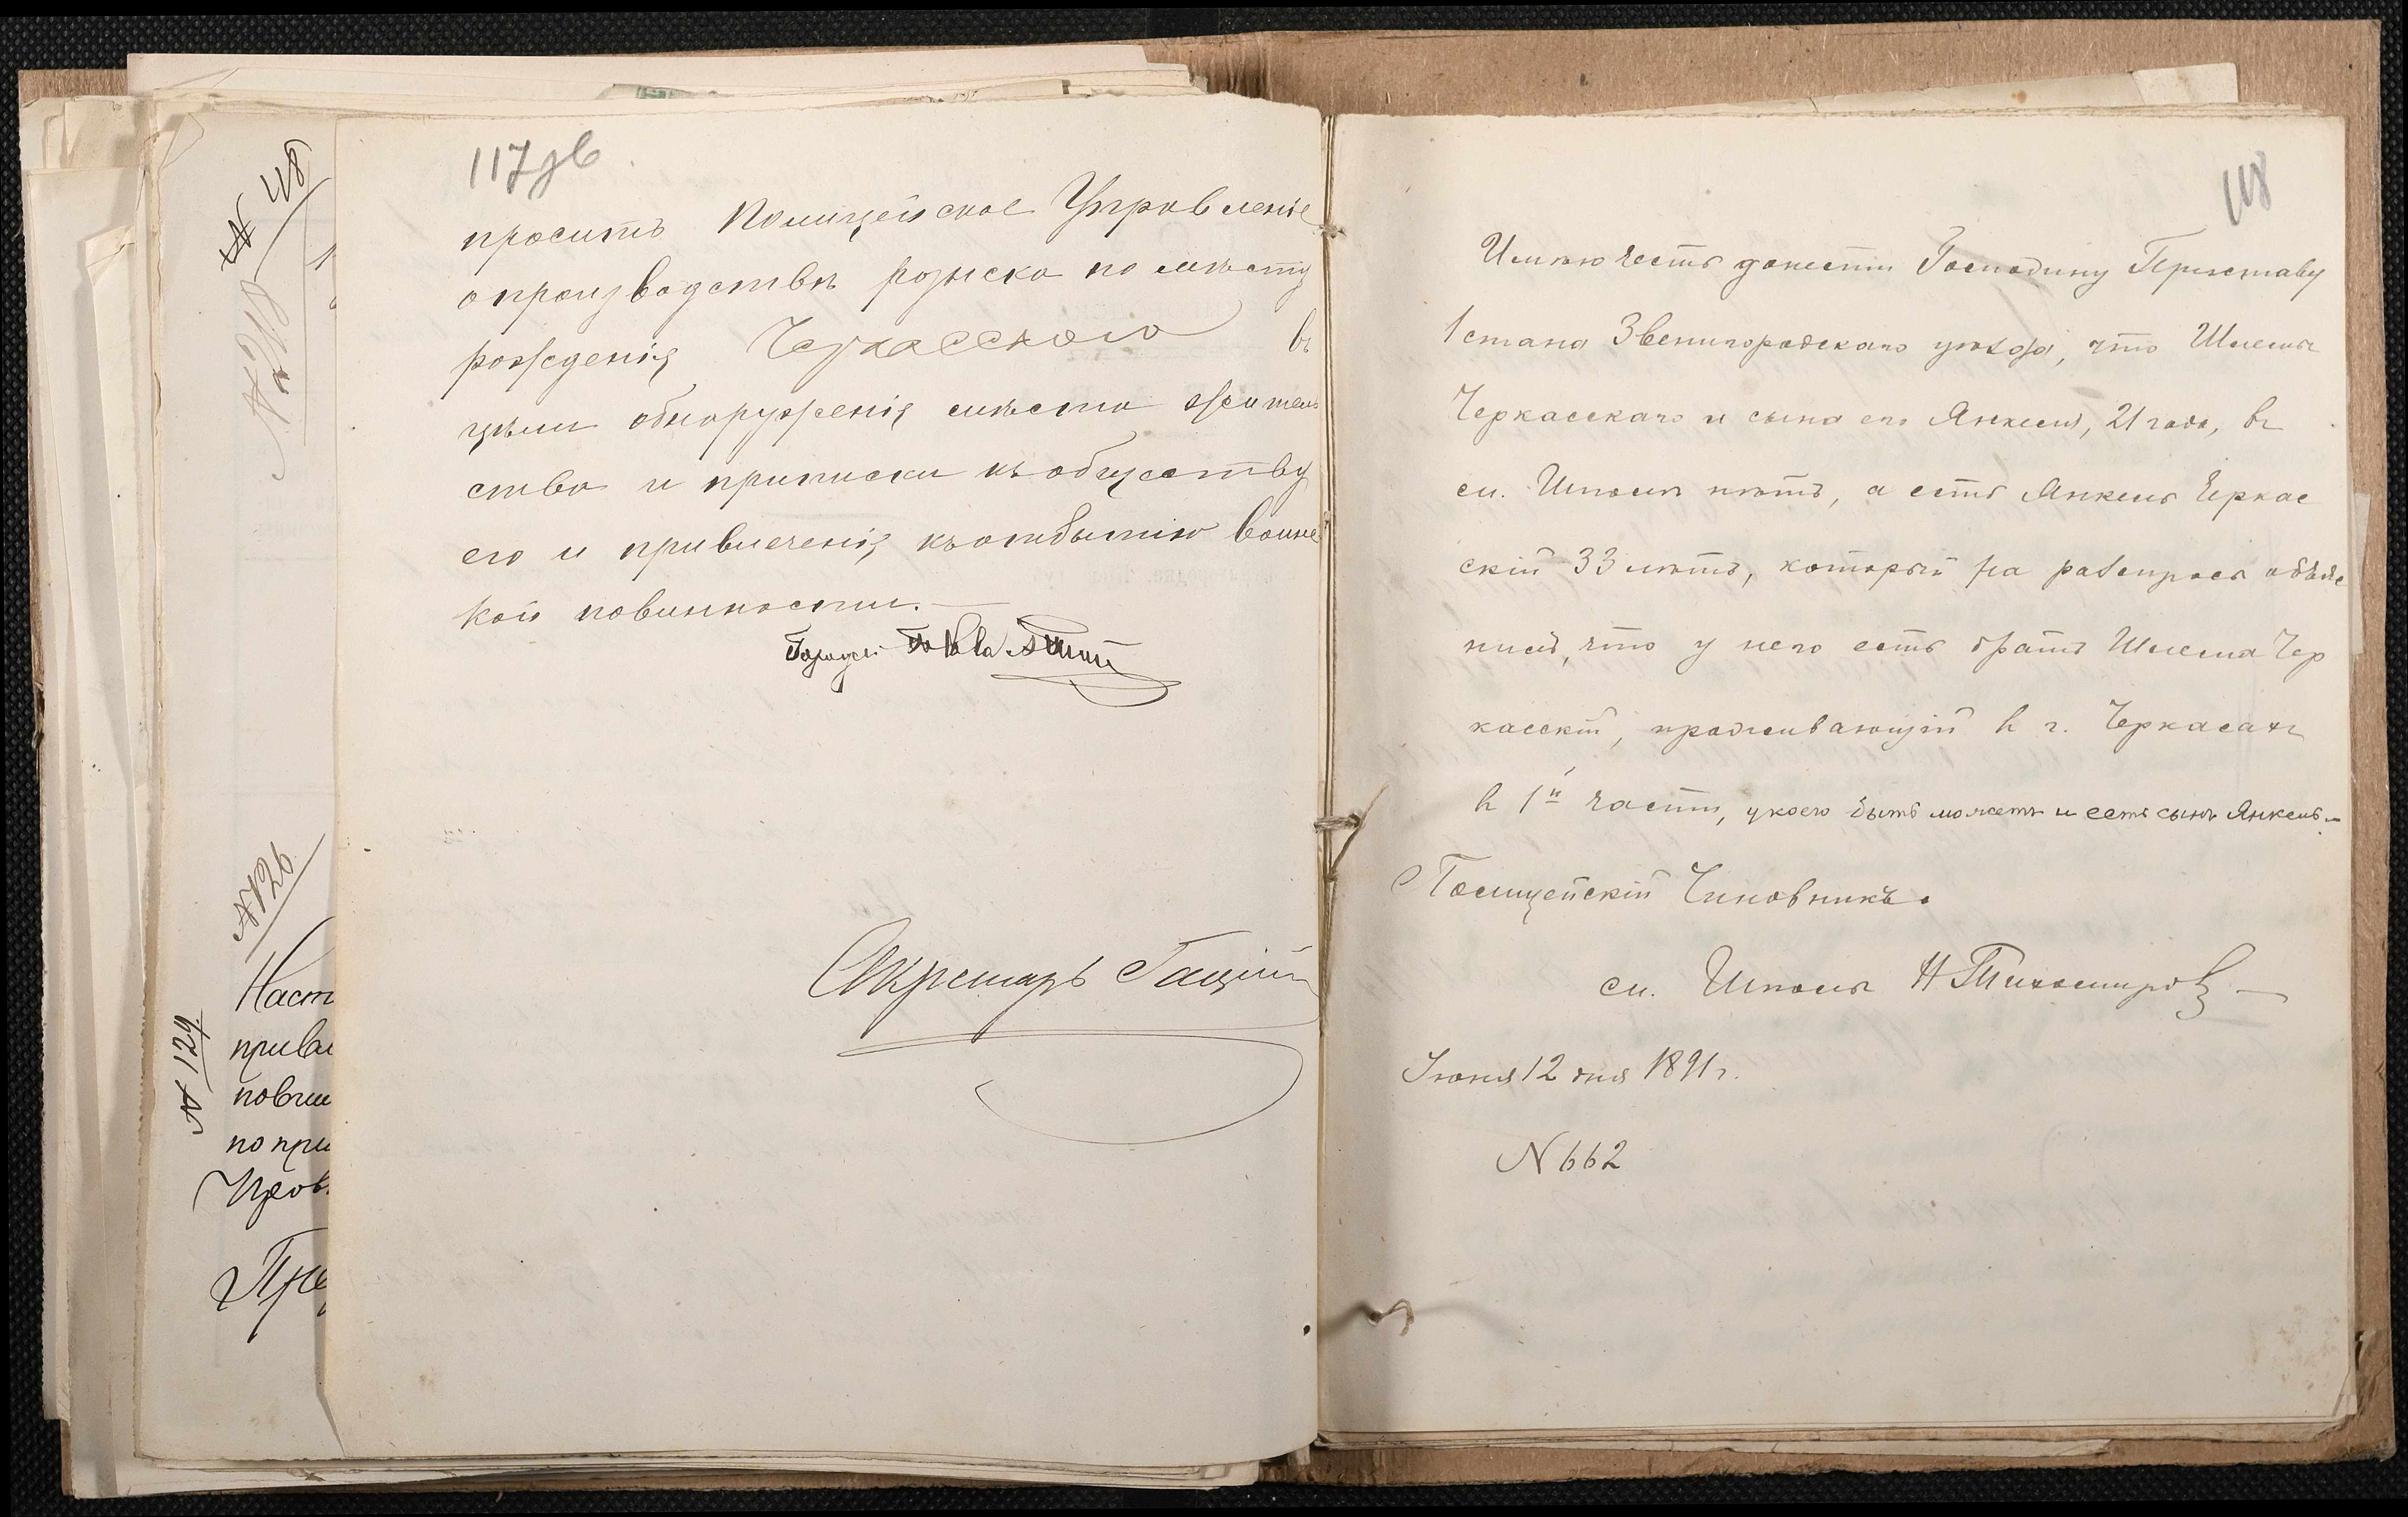 117 зв.
проситъ Полицейское Управленіе
о производствѣ розыска по мѣсту
рожденія Черкасского въ
цѣли обнаруженія мѣста житель
ства и приписки къ обществу
его и привлеченія къ отбытію воинс
кой повинности.
Секретарь
N 118
N 126
N 129
Наст
привле
повин
по при
118
Имѣю честь донести Господину Приставу
1 стана Звенигородскаго уѣзда, что Шлемы
Черкасскаго и сына его Янкеля, 21 года, въ
м. Шполѣ нѣтъ, а есть Янкель Черкас
скій 33 лѣтъ, который на разспросъ объяс
нилъ, что у него есть братъ Шлема Чер
касскій, проживающій въ г. Черкасахъ
въ 1й части, у коего быть можетъ и есть сынъ Янкель.
Полицейскій Чиновникъ
м. Шполы Н Тихомировъ
Іюня 12 дня 1891 г.
N 662